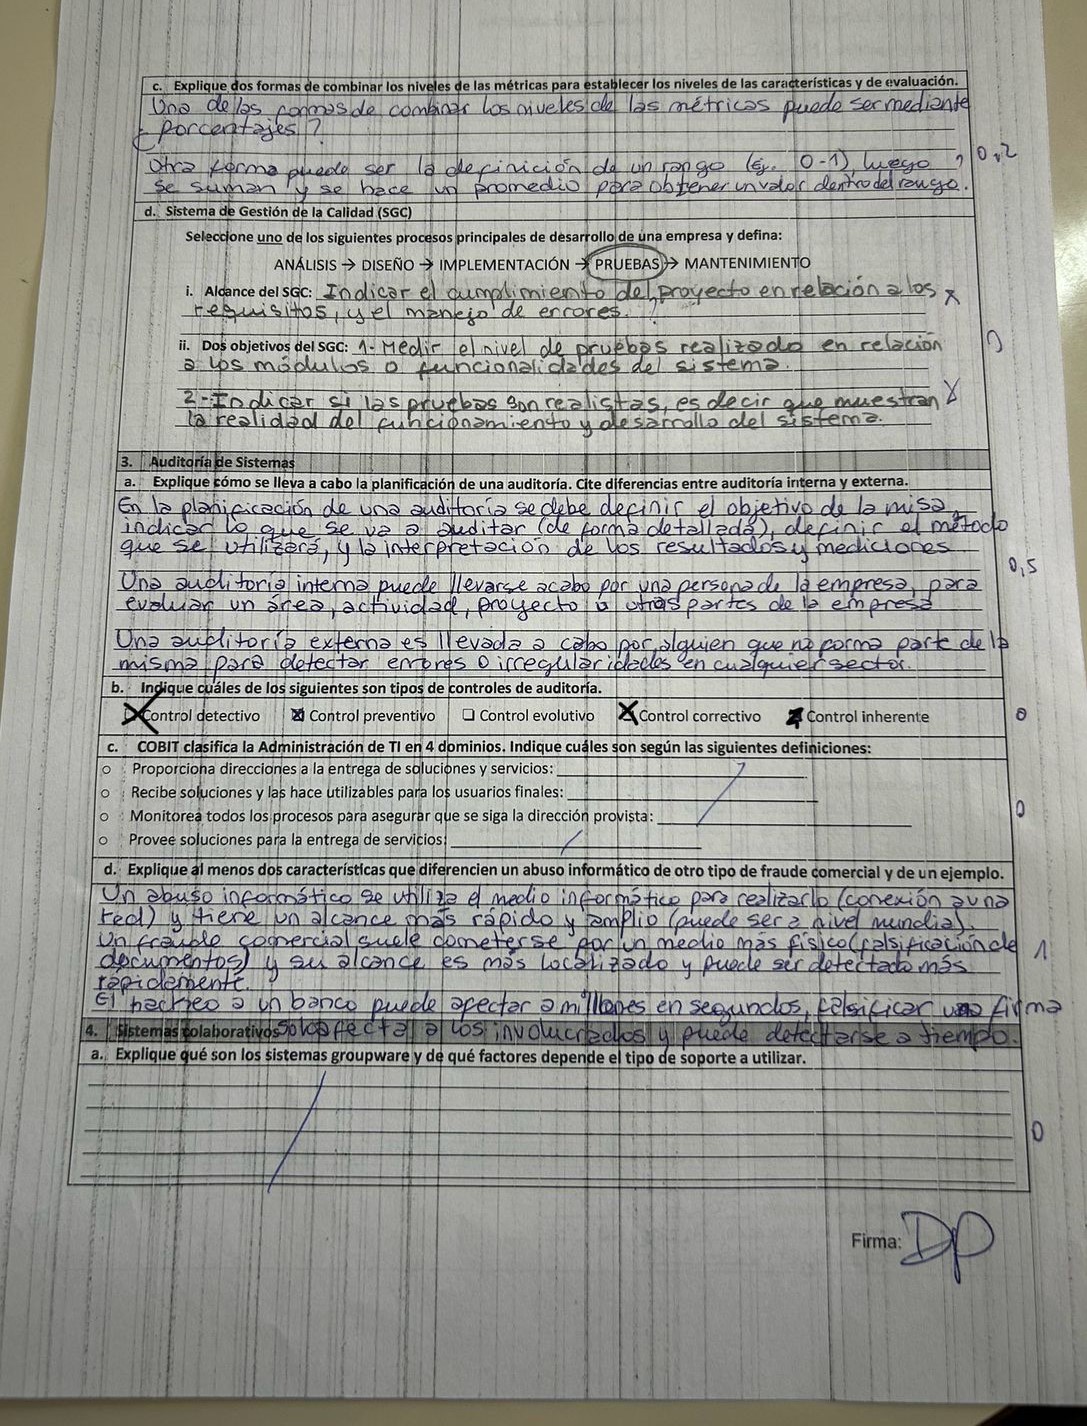 c. Explique dos formas de combinar los niveles de las métricas para establecer los niveles de las características y de evaluación.
Una de las formas de combinar los niveles de las métricas puede ser mediante
porcentajes ?
Otra forma puede ser la definición de un rango (Ej. 0-1), luego ? 0,2
se suman y se hace un promedio para obtener un valor dentro del rango.
d. Sistema de Gestión de la Calidad (SGC)
Seleccione uno de los siguientes procesos principales de desarrollo de una empresa y defina:
ANÁLISIS → DISEÑO → IMPLEMENTACIÓN → PRUEBAS → MANTENIMIENTO
i. Alcance del SGC: Indicar el cumplimiento del proyecto en relación a los x
requisitos, y el manejo de errores. ?
ii. Dos objetivos del SGC: 1- Medir el nivel de pruebas realizado en relación
a los módulos o funcionalidades del sistema.
2-Indicar si las pruebas son realistas, es decir que muestran
la realidad del funcionamiento y desarrollo del sistema.
3. Auditoría de Sistemas
a. Explique cómo se lleva a cabo la planificación de una auditoría. Cite diferencias entre auditoría interna y externa.
En la planificación de una auditoría se debe definir el objetivo de la misa,
indicar lo que se va a auditar (de forma detallada), definir el método
que se utilizará, y la interpretación de los resultados y mediciones
0,5
Una auditoría interna puede llevarse acabo por una persona de la empresa, para
evaluar un área, actividad, proyecto u otras partes de la empresa
Una auditoría externa es llevada a cabo por alguien que no forma parte de la
misma para detectar errores o irregularidades en cualquier sector.
b. Indique cuáles de los siguientes son tipos de controles de auditoría.
Control detectivo Control preventivo Control evolutivo Control correctivo Control inherente 0
c. COBIT clasifica la Administración de TI en 4 dominios. Indique cuáles son según las siguientes definiciones:
Proporciona direcciones a la entrega de soluciones y servicios:
Recibe soluciones y las hace utilizables para los usuarios finales: 0
Monitorea todos los procesos para asegurar que se siga la dirección provista:
Provee soluciones para la entrega de servicios:
d. Explique al menos dos características que diferencien un abuso informático de otro tipo de fraude comercial y de un ejemplo.
Un abuso informático se utiliza el medio informático para realizarlo (conexión a una
red) y tiene un alcance más rápido y amplio (puede ser a nivel mundial).
Un fraude comercial suele cometerse por un medio más físico (falsificación de
documentos) y su alcance es más localizado y puede ser detectado más 1
rápidamente.
El hackeo a un banco puede afectar a millones en segundos, falsificar una firma
4. Sistemas colaborativos solo afecta a los involucrados y puede detectarse a tiempo.
a. Explique qué son los sistemas groupware y de qué factores depende el tipo de soporte a utilizar.
0
Firma: DP